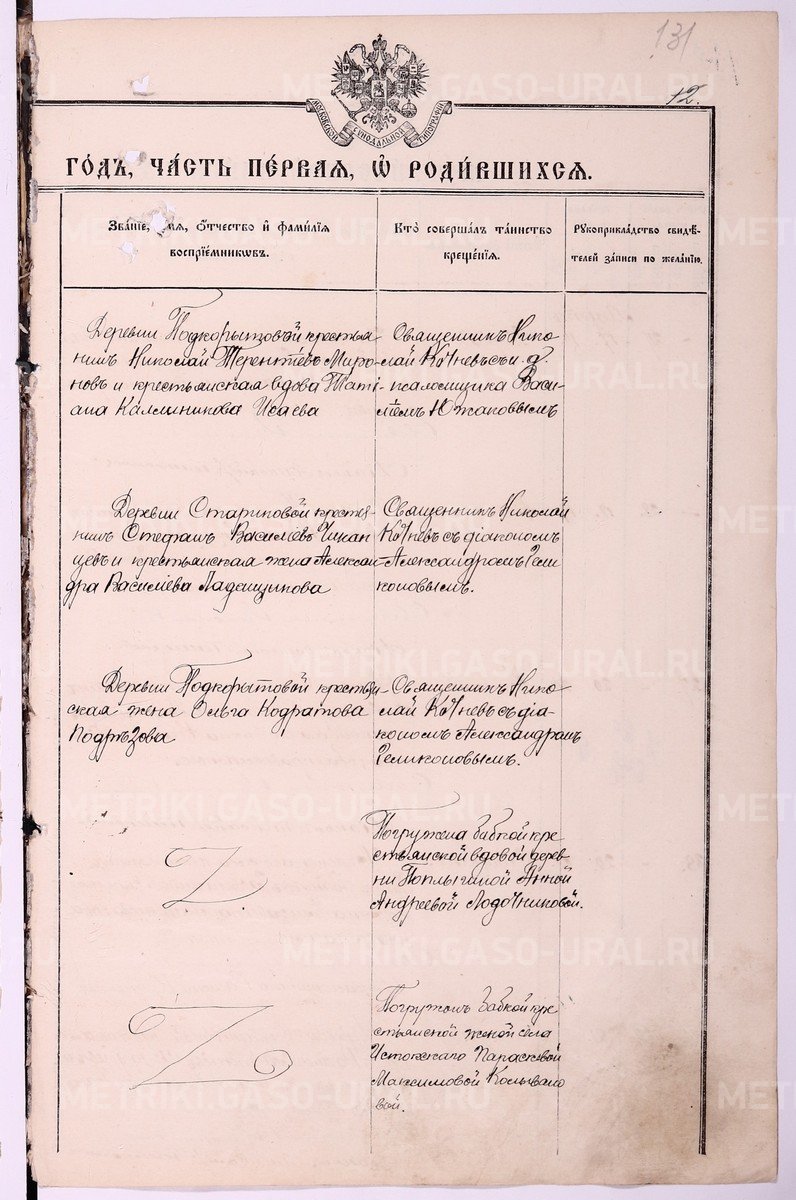 131
12.
МОСКОВСКОЙ СѴНОДАЛЬНОЙ ТИПОГРАФІИ
ГО́ДЪ, ЧА́СТЬ ПЕ́РВАЯ, Ѽ РОДИ́ВШИХСѦ.
Зва́ніе, и́мя, о́тчество и҆ фами́лїѧ
воспрїе́мникѡвъ.
Кто̀ соверша́лъ та́инство
креще́нїѧ.
Рꙋкоприкла́дство свидѣ́-
телей за́писи по жела́нїю.
Деревни Подкорытовой крестья
нинъ Николай Терентіевъ Миро-
новъ и крестьянская вдова Тать
яна Каллиникова Исаева
Священникъ Нико
лай Кочневъ съ и. д.
псаломщика Васи-
ліемъ Южаковымъ
Деревни Стариковой крестья-
нинъ Стефанъ Васильевъ
и крестьянская жена Алексан-
дра Васильева Ладейщикова
Священникъ Николай
Кочневъ съ діакономъ
Александромъ Гели
коновымъ.
Деревни Подкорытовой крестьян-
ская жена Ольга Кодратова
Подрѣзова
Священникъ Нико
лай Кочневъ съ діа-
кономъ Александромъ
Геликоновымъ.
Z.
Погружена бабкой кре
стьянской вдовой дерев-
ни Поплыгиной Анной
Андреевой Лодочниковой.
Z
Погружонъ бабкой кре
стьянской женой села
Истокскаго Парасковой
Максимовой Колывано
вой.
METRIKI.GASO-URAL.RU